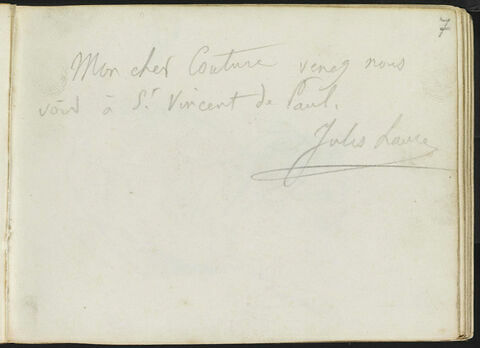 7
Mon cher Couture venez nous
voir à St Vincent de Paul.
Jules Laure